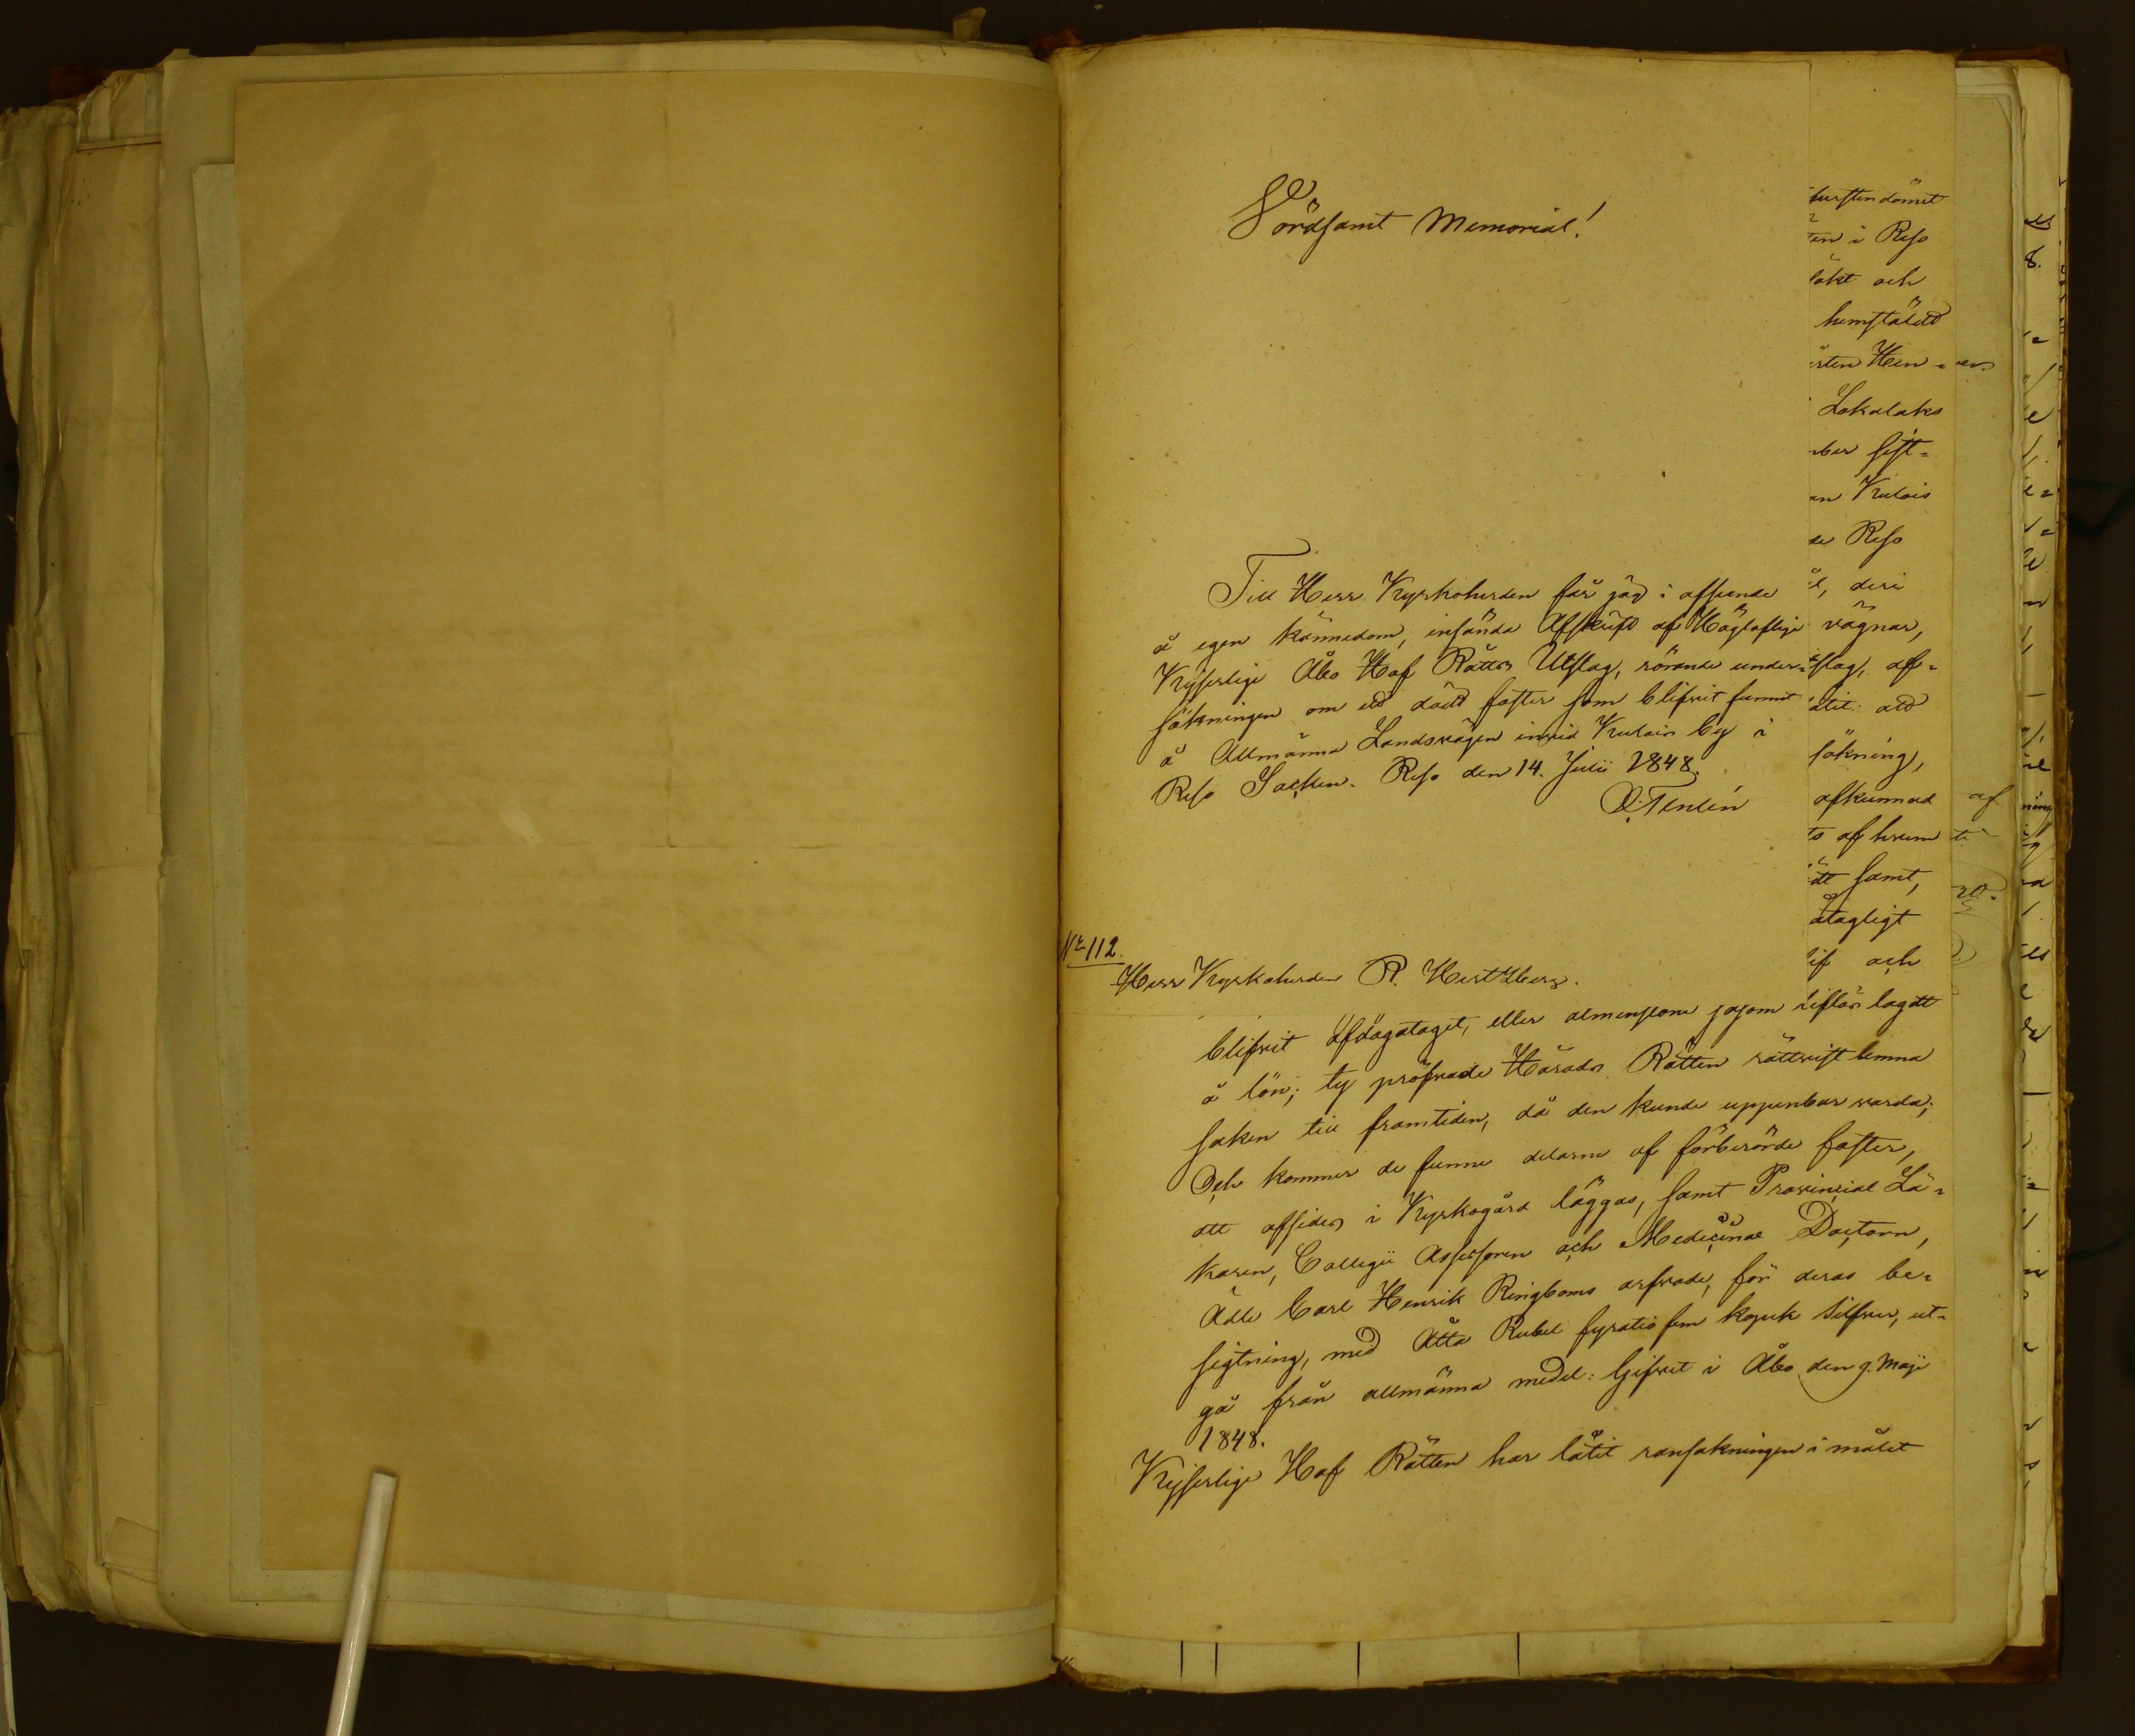 Wördsamt Memorial!
Till Herr Kyrkoherden får jag i afseende
å egen kännedom, insända Afskrift af Höglaflige
Kejserlige Åbo Hof Rätts Utslag, rörande under=
sökningen om ett dödt foster som blifvit funnit
å Allmänna Landsvägen invid Kulais by i
Reso Socken. Reso den 14. Julii 1848.
Nr 112.
Herr Kyrkoherden R. Hertzberg.
blifvit afdagataget, eller almenneone lagdt
å lön; ty pröfvade Härads Rätten rättvist lemna
saken till framtiden, då den kunde uppenbar varda;
Och kommer de funne delarne af förberörde foster,
att afsides i Kyrkogård läggas, samt Provincial Lä=
karen, Collegii Assessoren och Medicinæ Doctorn,
Ädle Carl Henrik Ringboms arfvode, för deras be=
sigtning, med Åtta Rubel fyratio fem kopek Silfver, ut=
gå från allmänna medel: Gifvet i Åbo den 9. Maji
1848.
Kejserlige Hof Rätten har låtit ransakningen i målet
furstendömet
i Reso
och
hemstäldt
Hen=
Lokalaks
sist=
Kulais
Reso
deri
vägnar,
af=
att
sökning,
afkunnad
af hvem
samt,
och
af